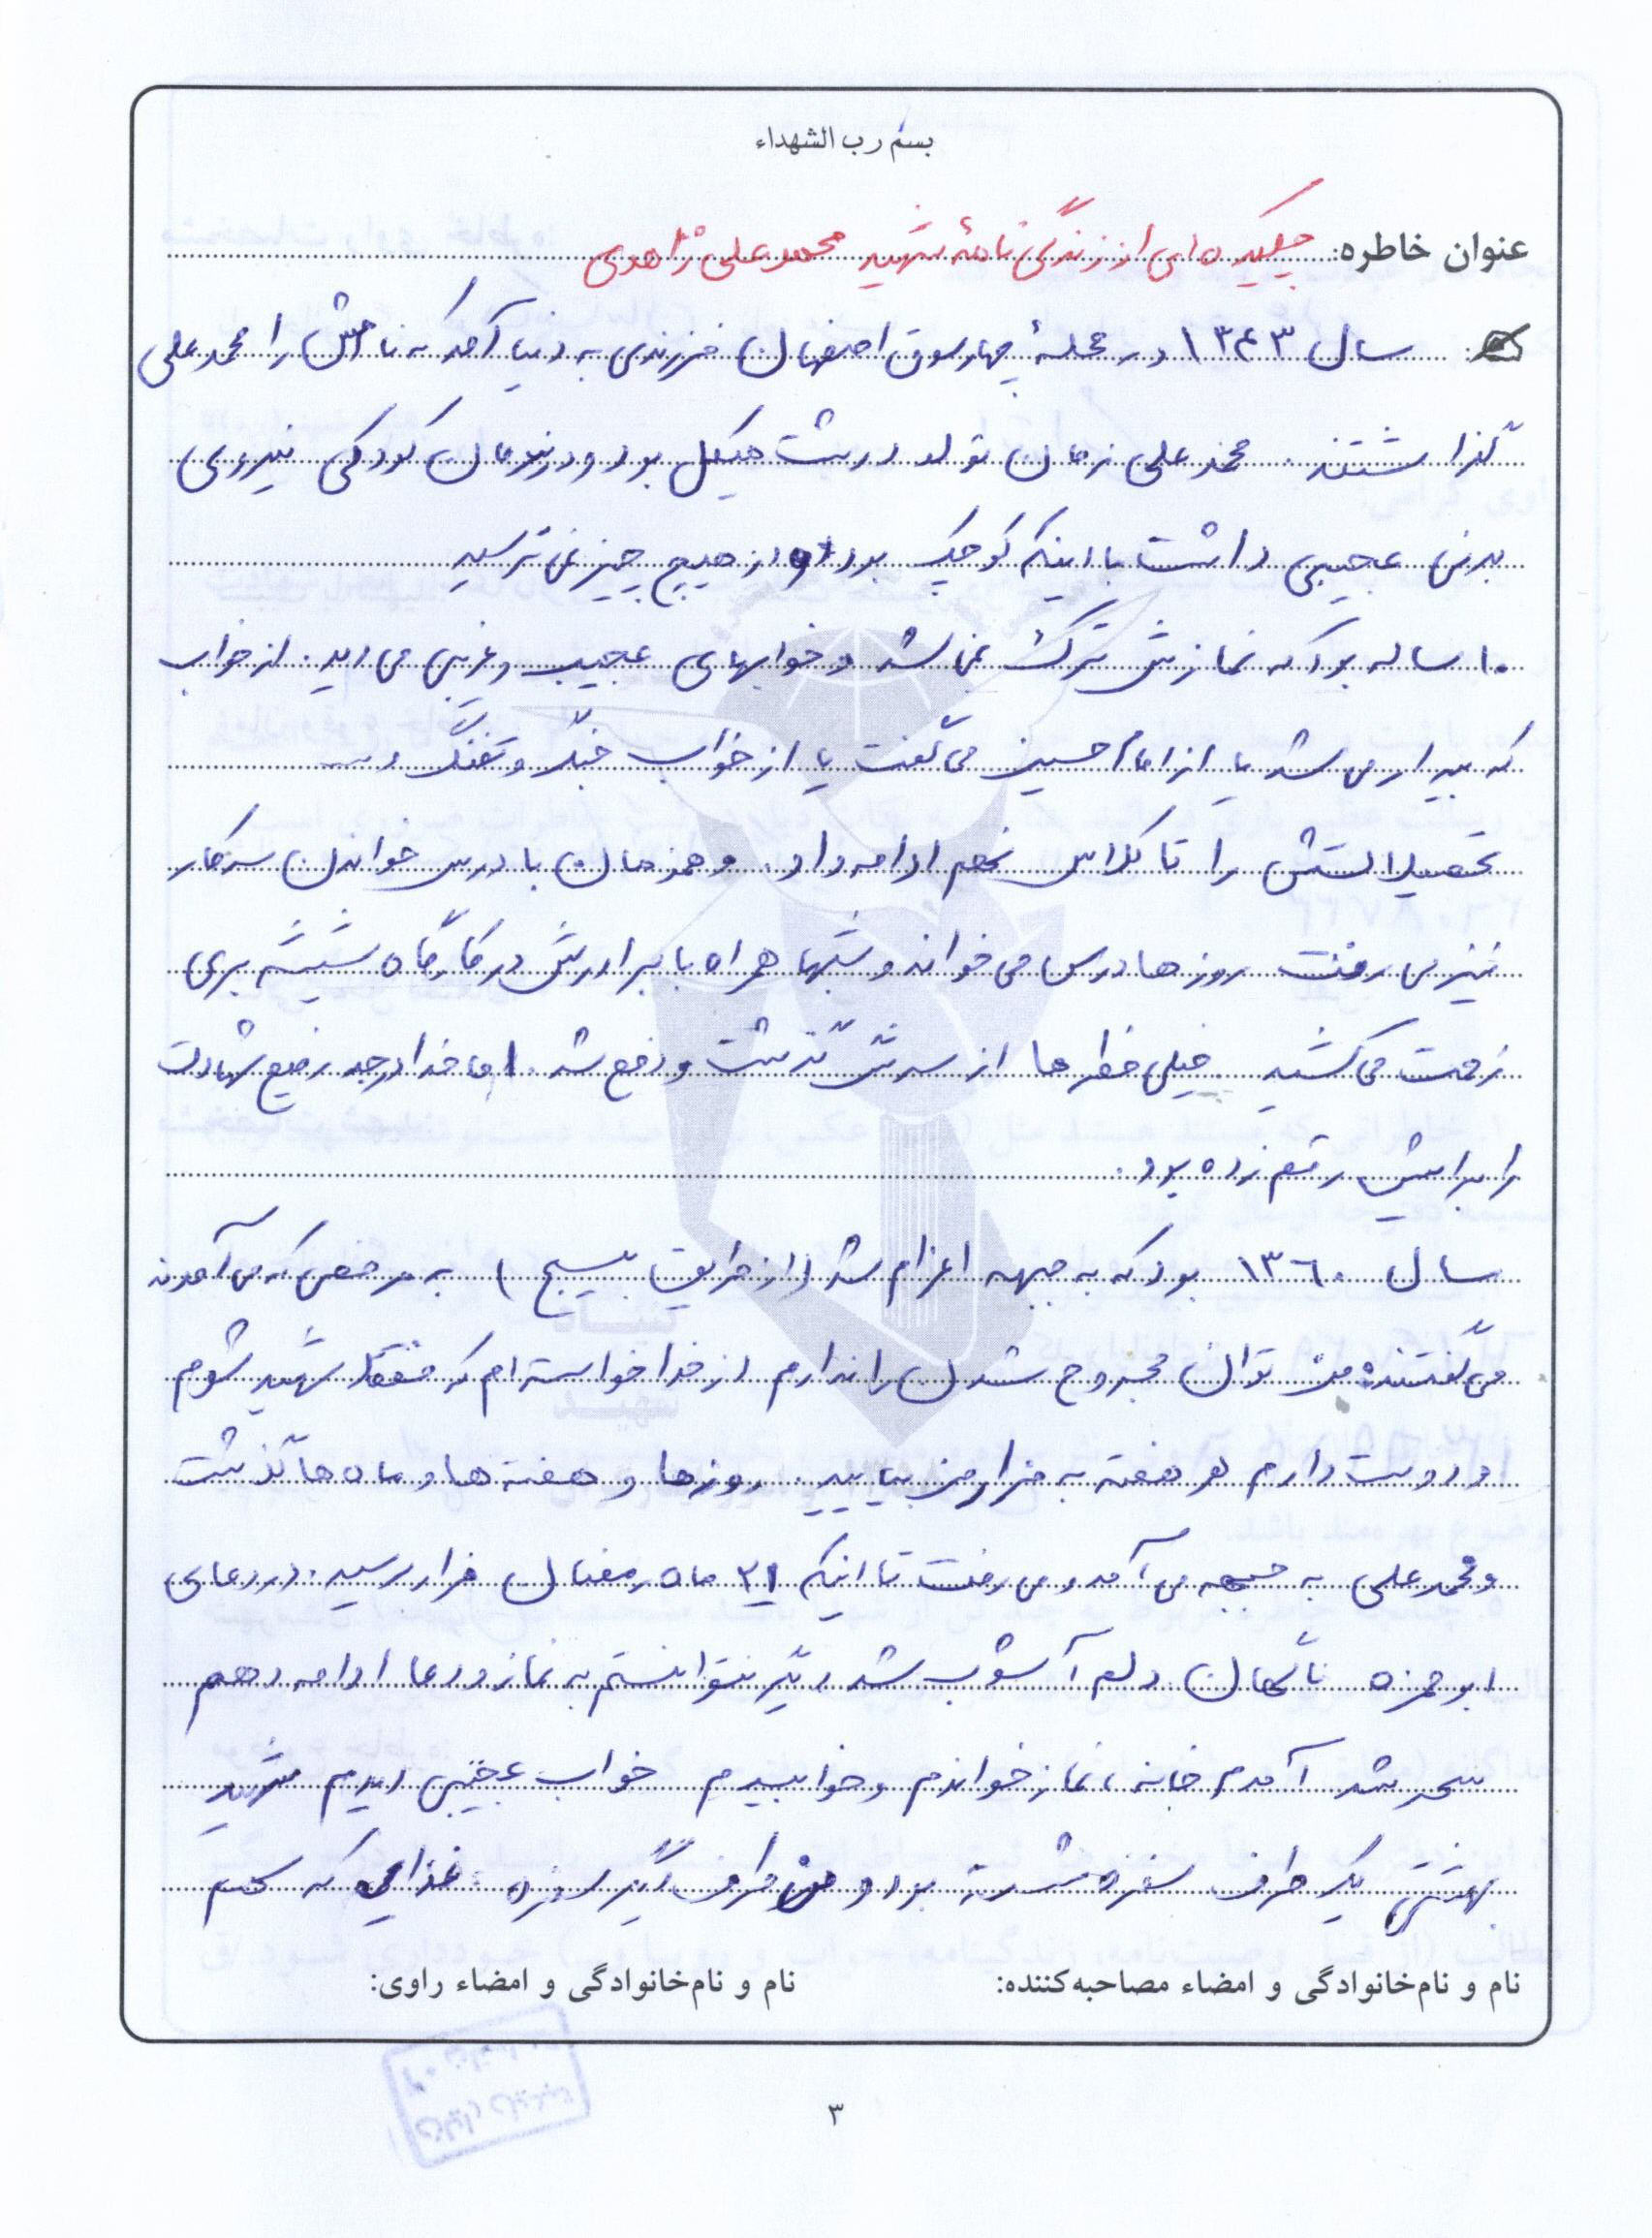 بسم رب الشهداء
عنوان خاطره: چکیده‌ای از زندگی نامهٔ شهید محمد علی زاهدی
سال ۱۳۴۳ در محلهٔ چهارسوق اصفهان فرزندی به دنیا آمد که نامش را محمد علی
گذاشتند. محمد علی زمان تولد درشت هیکل بود و در زمان کودکی نیروی
بدنی عجیبی داشت با اینکه کوچک بود و از هیچ چیز نمی ترسید
۱۰ ساله بود که نمازش ترک نمی شد و خوابهای عجیب و غریبی می دید. از خواب
که بیدار می شد یا از امام حسین می گفت یا از خواب جنگ و تفنگ و ...
تحصیلاتش را تا کلاس نهم ادامه داد. و همزمان با درس خواندن سرکار
نیز می رفت روزها درس می خواند و شبها همراه با برادرش در کارگاه شیشه بری
زحمت می کشید. خیلی خطرها از سرش گذشت و رفع شد. اما خدا درجه رفیع شهادت
را برایش رقم زده بود.
سال ۱۳۶۰ بود که به جبهه اعزام شد (از طریق بسیج) به مرخصی که می آمدند
می گفتند من توان مجروح شدن را ندارم از خدا خواسته ام که فقط شهید شوم
و دوست دارم هر هفته به مزار من بیایید. روزها و هفته ها و ماه ها گذشت
و محمد علی به جبهه می آمد و می رفت تا اینکه ۲۱ ماه رمضان فرا رسید. در دعای
ابو حمزه ناگهان دلم آشوب شد دیگر نتوانستم به نماز و دعا ادامه دهم
سحر شد آمدم خانه، نماز خواندم و خوابیدم خواب عجیبی دیدم شهید
بهشتی یک طرف سفره نشسته بود و من طرف دیگر سفره. غذایی که سهم
نام و نام‌خانوادگی و امضاء مصاحبه‌کننده: نام و نام‌خانوادگی و امضاء راوی:
۳